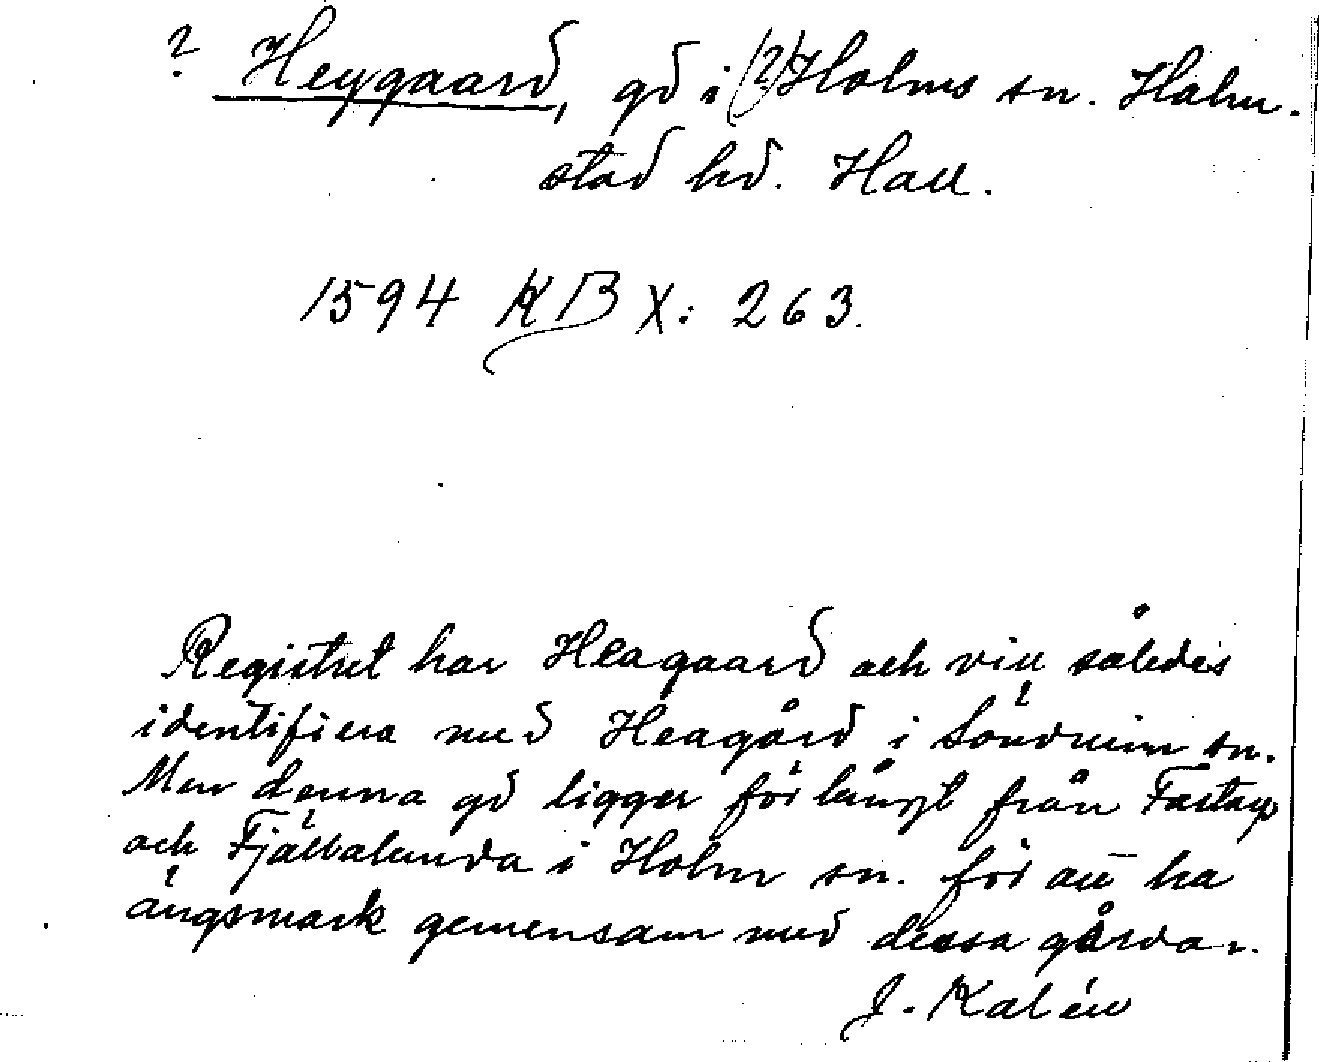 ? Heygaard, gd i (?) Holms sn. Halm-
stad hd. Hall.
1594 KB X: 263.
Registret har Heagaard och vill således
identifiera med Heagård i Söndrum sn.
Men denna gd ligger för långt från Fastarp
och Fjällalunda i Holm sn. för att ha
ängsmark gemensam med dessa gårdar.
J. Kalén